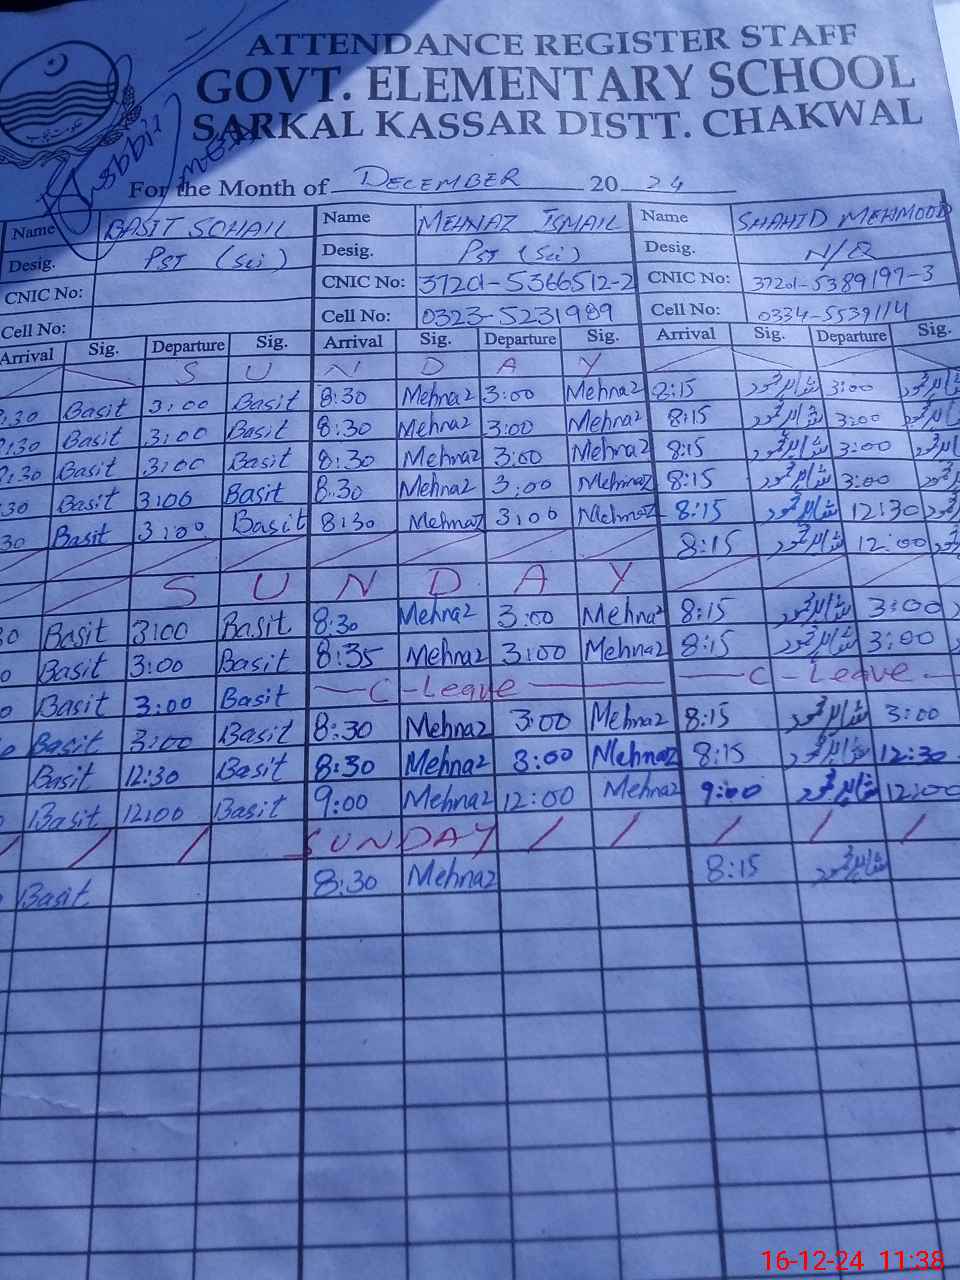 ATTENDANCE REGISTER STAFF
GOVT. ELEMENTARY SCHOOL
SARKAL KASSAR DISTT. CHAKWAL
For the Month of DECEMBER 2024
Name BASIT SOHAIL Name MEHNAZ ISMAIL Name SHAHID MEHMOOD
Desig. PST (Sci) Desig. PST (Sci) Desig. N/Q
CNIC No: CNIC No: 37201-5366512-2 CNIC No: 37201-5389197-3
Cell No: Cell No: 0323-5231989 Cell No: 0334-5539114
Arrival Sig. Departure Sig. Arrival Sig. Departure Sig. Arrival Sig. Departure Sig.
S U N D A Y
:30 Basit 3:00 Basit 8:30 Mehnaz 3:00 Mehnaz 8:15 شاہد محمود 3:00 شاہد محمود
:30 Basit 3:00 Basit 8:30 Mehnaz 3:00 Mehnaz 8:15 شاہد محمود 3:00
:30 Basit 3:00 Basit 8:30 Mehnaz 3:00 Mehnaz 8:15 شاہد محمود 3:00
30 Basit 3:00 Basit 8:30 Mehnaz 3:00 Mehnaz 8:15 شاہد محمود 3:00
30 Basit 3:00 Basit 8:30 Mehnaz 3:00 Mehnaz 8:15 شاہد محمود 12:30
8:15 شاہد محمود 12:00
S U N D A Y
30 Basit 3:00 Basit 8:30 Mehnaz 3:00 Mehnaz 8:15 شاہد محمود 3:00
0 Basit 3:00 Basit 8:35 Mehnaz 3:00 Mehnaz 8:15 شاہد محمود 3:00
0 Basit 3:00 Basit C-Leave C-Leave
0 Basit 3:00 Basit 8:30 Mehnaz 3:00 Mehnaz 8:15 شاہد محمود 3:00
Basit 12:30 Basit 8:30 Mehnaz 3:00 Mehnaz 8:15 شاہد محمود 12:30
Basit 12:00 Basit 9:00 Mehnaz 12:00 Mehnaz 9:00 شاہد محمود 12:00
SUNDAY
Basit 8:30 Mehnaz 8:15 شاہد محمود
16-12-24 11:38